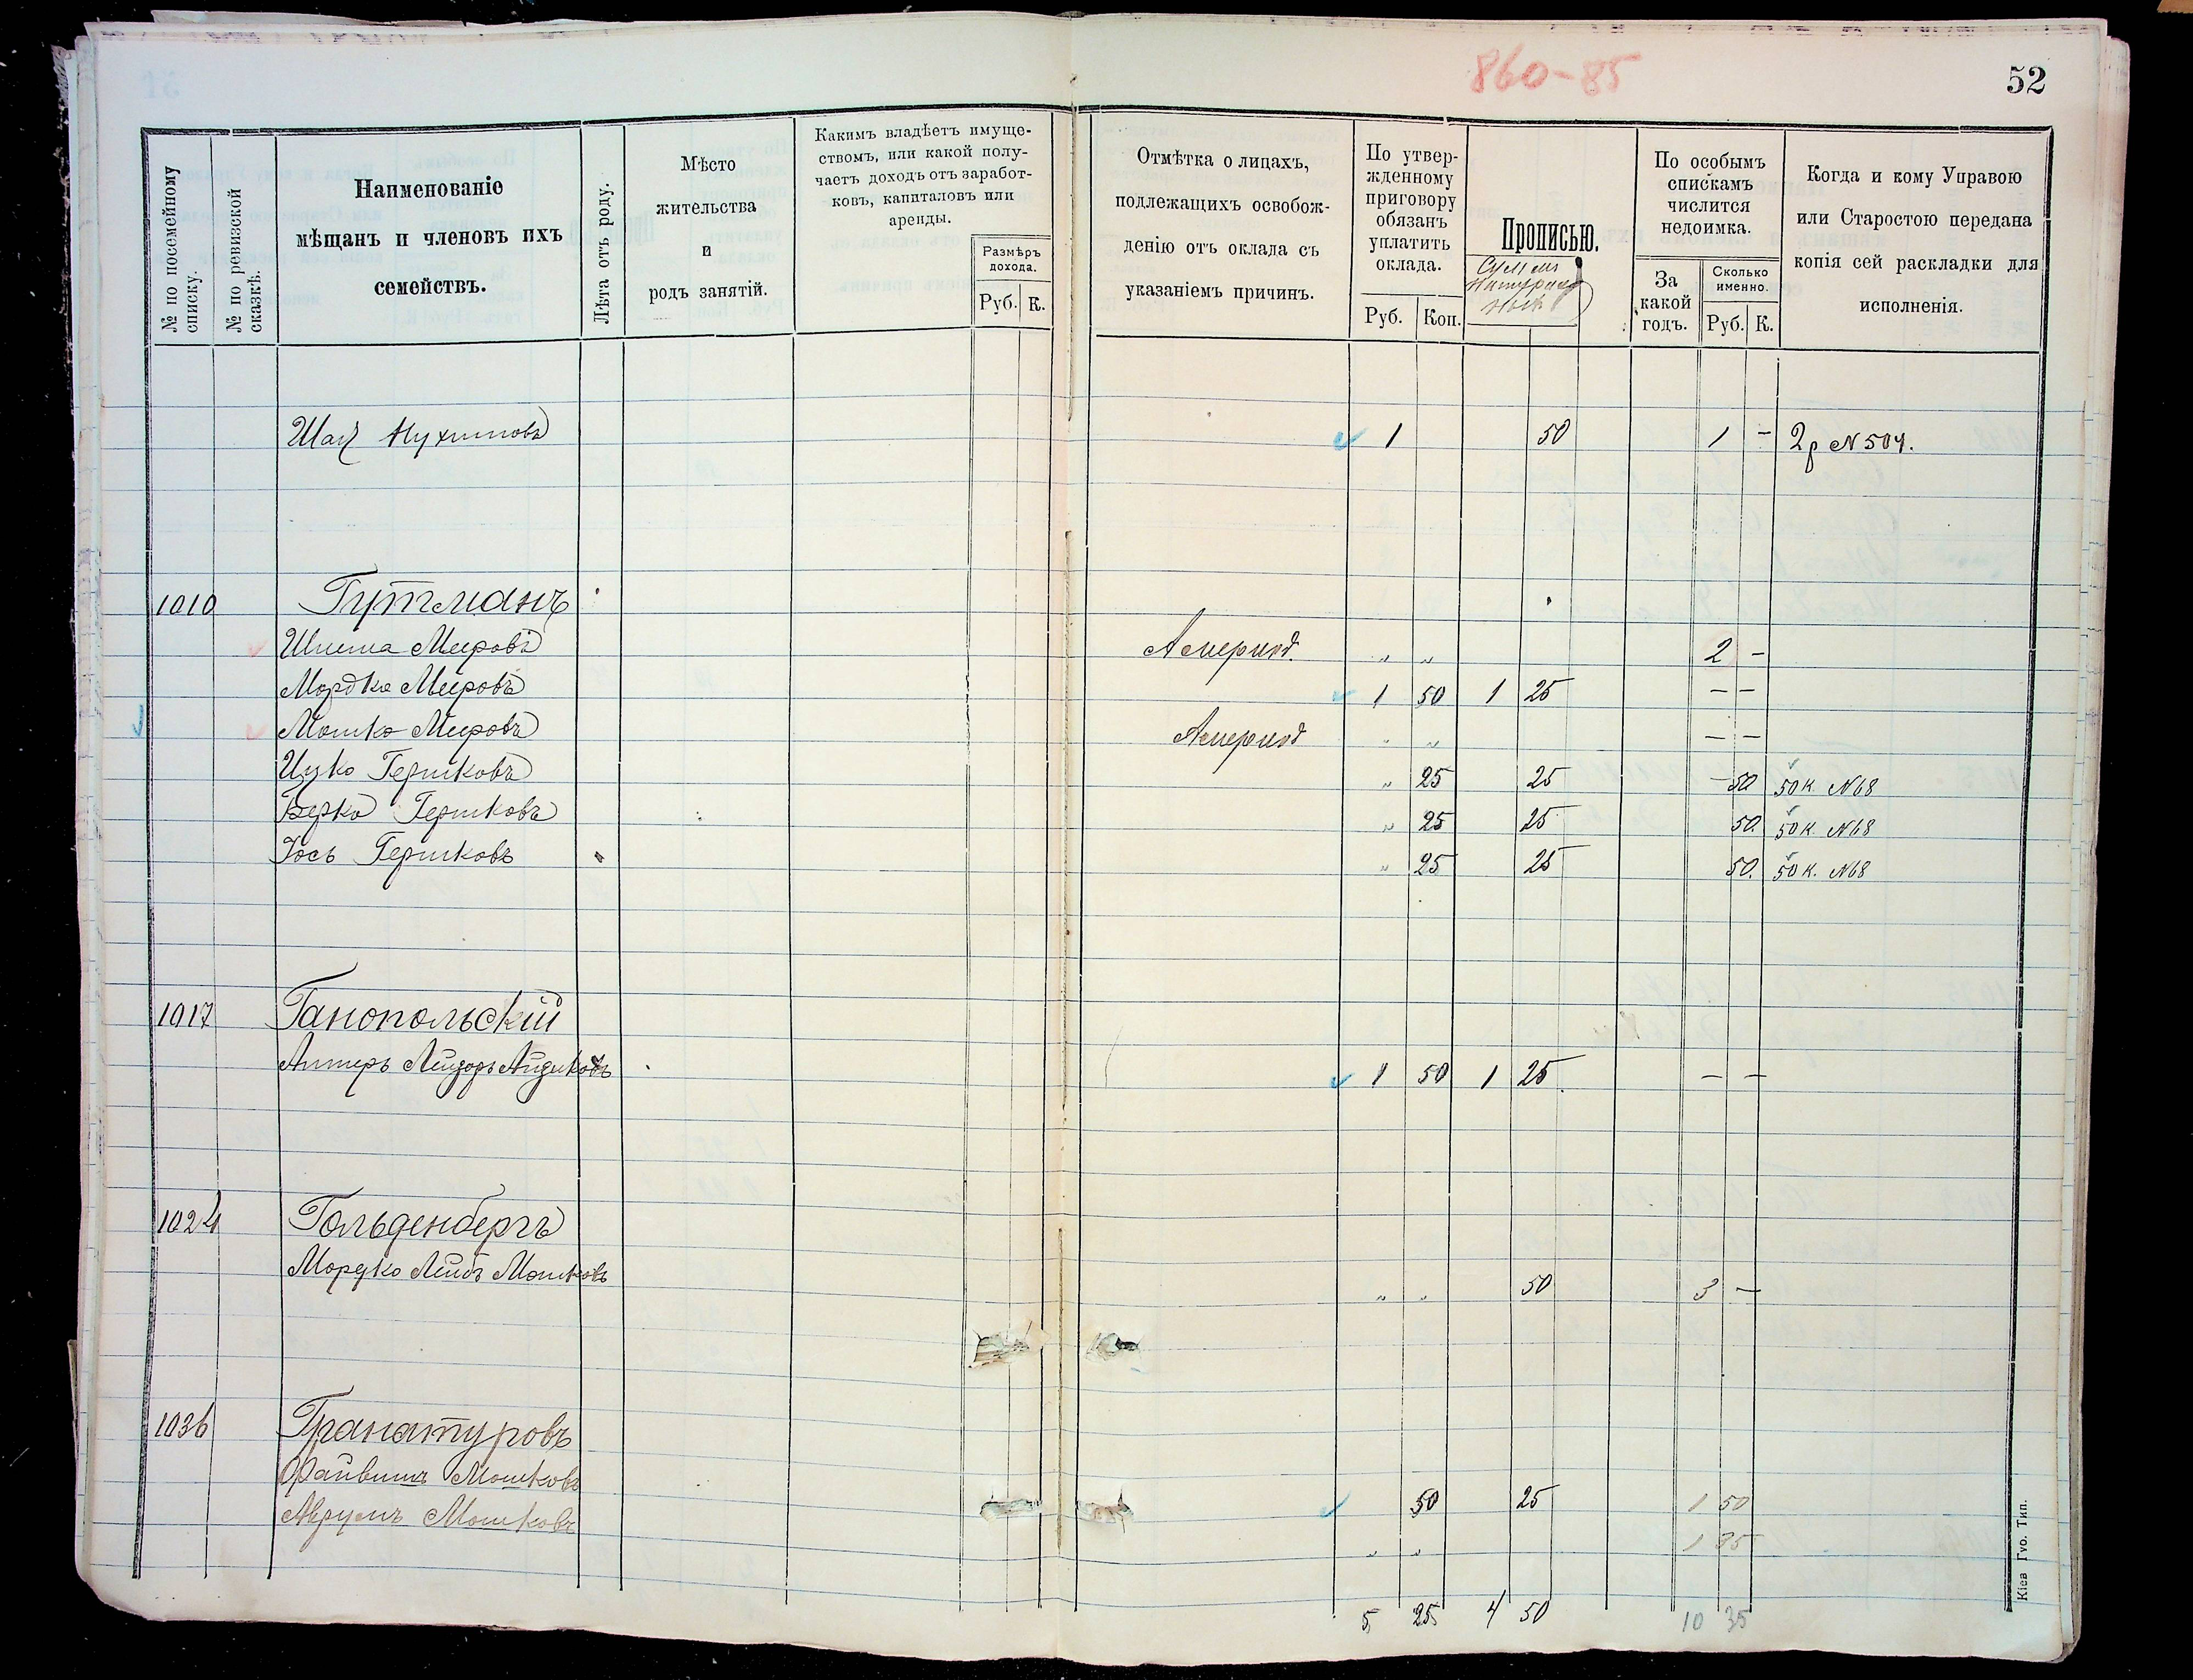 860-85
52
№ по посемейному списку.
№ по ревизской сказкѣ.
Наименованіе
мѣщанъ и членовъ ихъ
семействъ.
Лѣта отъ роду.
Мѣсто
жительства
и
родъ занятій.
Какимъ владѣетъ имуще-
ствомъ, или какой полу-
чаетъ доходъ отъ заработ-
ковъ, капиталовъ или
аренды.
Размѣръ
дохода.
Руб. К.
Отмѣтка о лицахъ,
подлежащихъ освобож-
денію отъ оклада съ
указаніемъ причинъ.
По утвер-
жденному
приговору
обязанъ
уплатить
оклада.
Руб. Коп.
Прописью.
По особымъ
спискамъ
числится
недоимка.
За
какой
годъ.
Сколько
именно.
Руб. К.
Когда и кому Управою
или Старостою передана
копія сей раскладки для
исполненія.
Нухимовъ 1 50 1 - 2р №504.
1010 Гутманъ
Шлема Мееровъ 2 -
Мордко Мееровъ 1 50 1 25 - -
Мошко Мееровъ " " - -
Ицко Гершковъ " 25 25 - 50 50 к. №68
Берко Гершковъ " 25 25 50. 50 к. №68
Іось Гершковъ " 25 25 50. 50 к. №68
1017 Ганопольскій
Алтеръ 1 50 1 25 - -
1024 Гольденбергъ
Мордко Лейбъ Мошковъ " " 50 3 -
1036 Гранатуровъ
Файвишъ Мошковъ 50 25 1 50
Аврумъ Мошковъ " " 1 35
5 25 4 50 10 35
Кіев Губ. Тип.